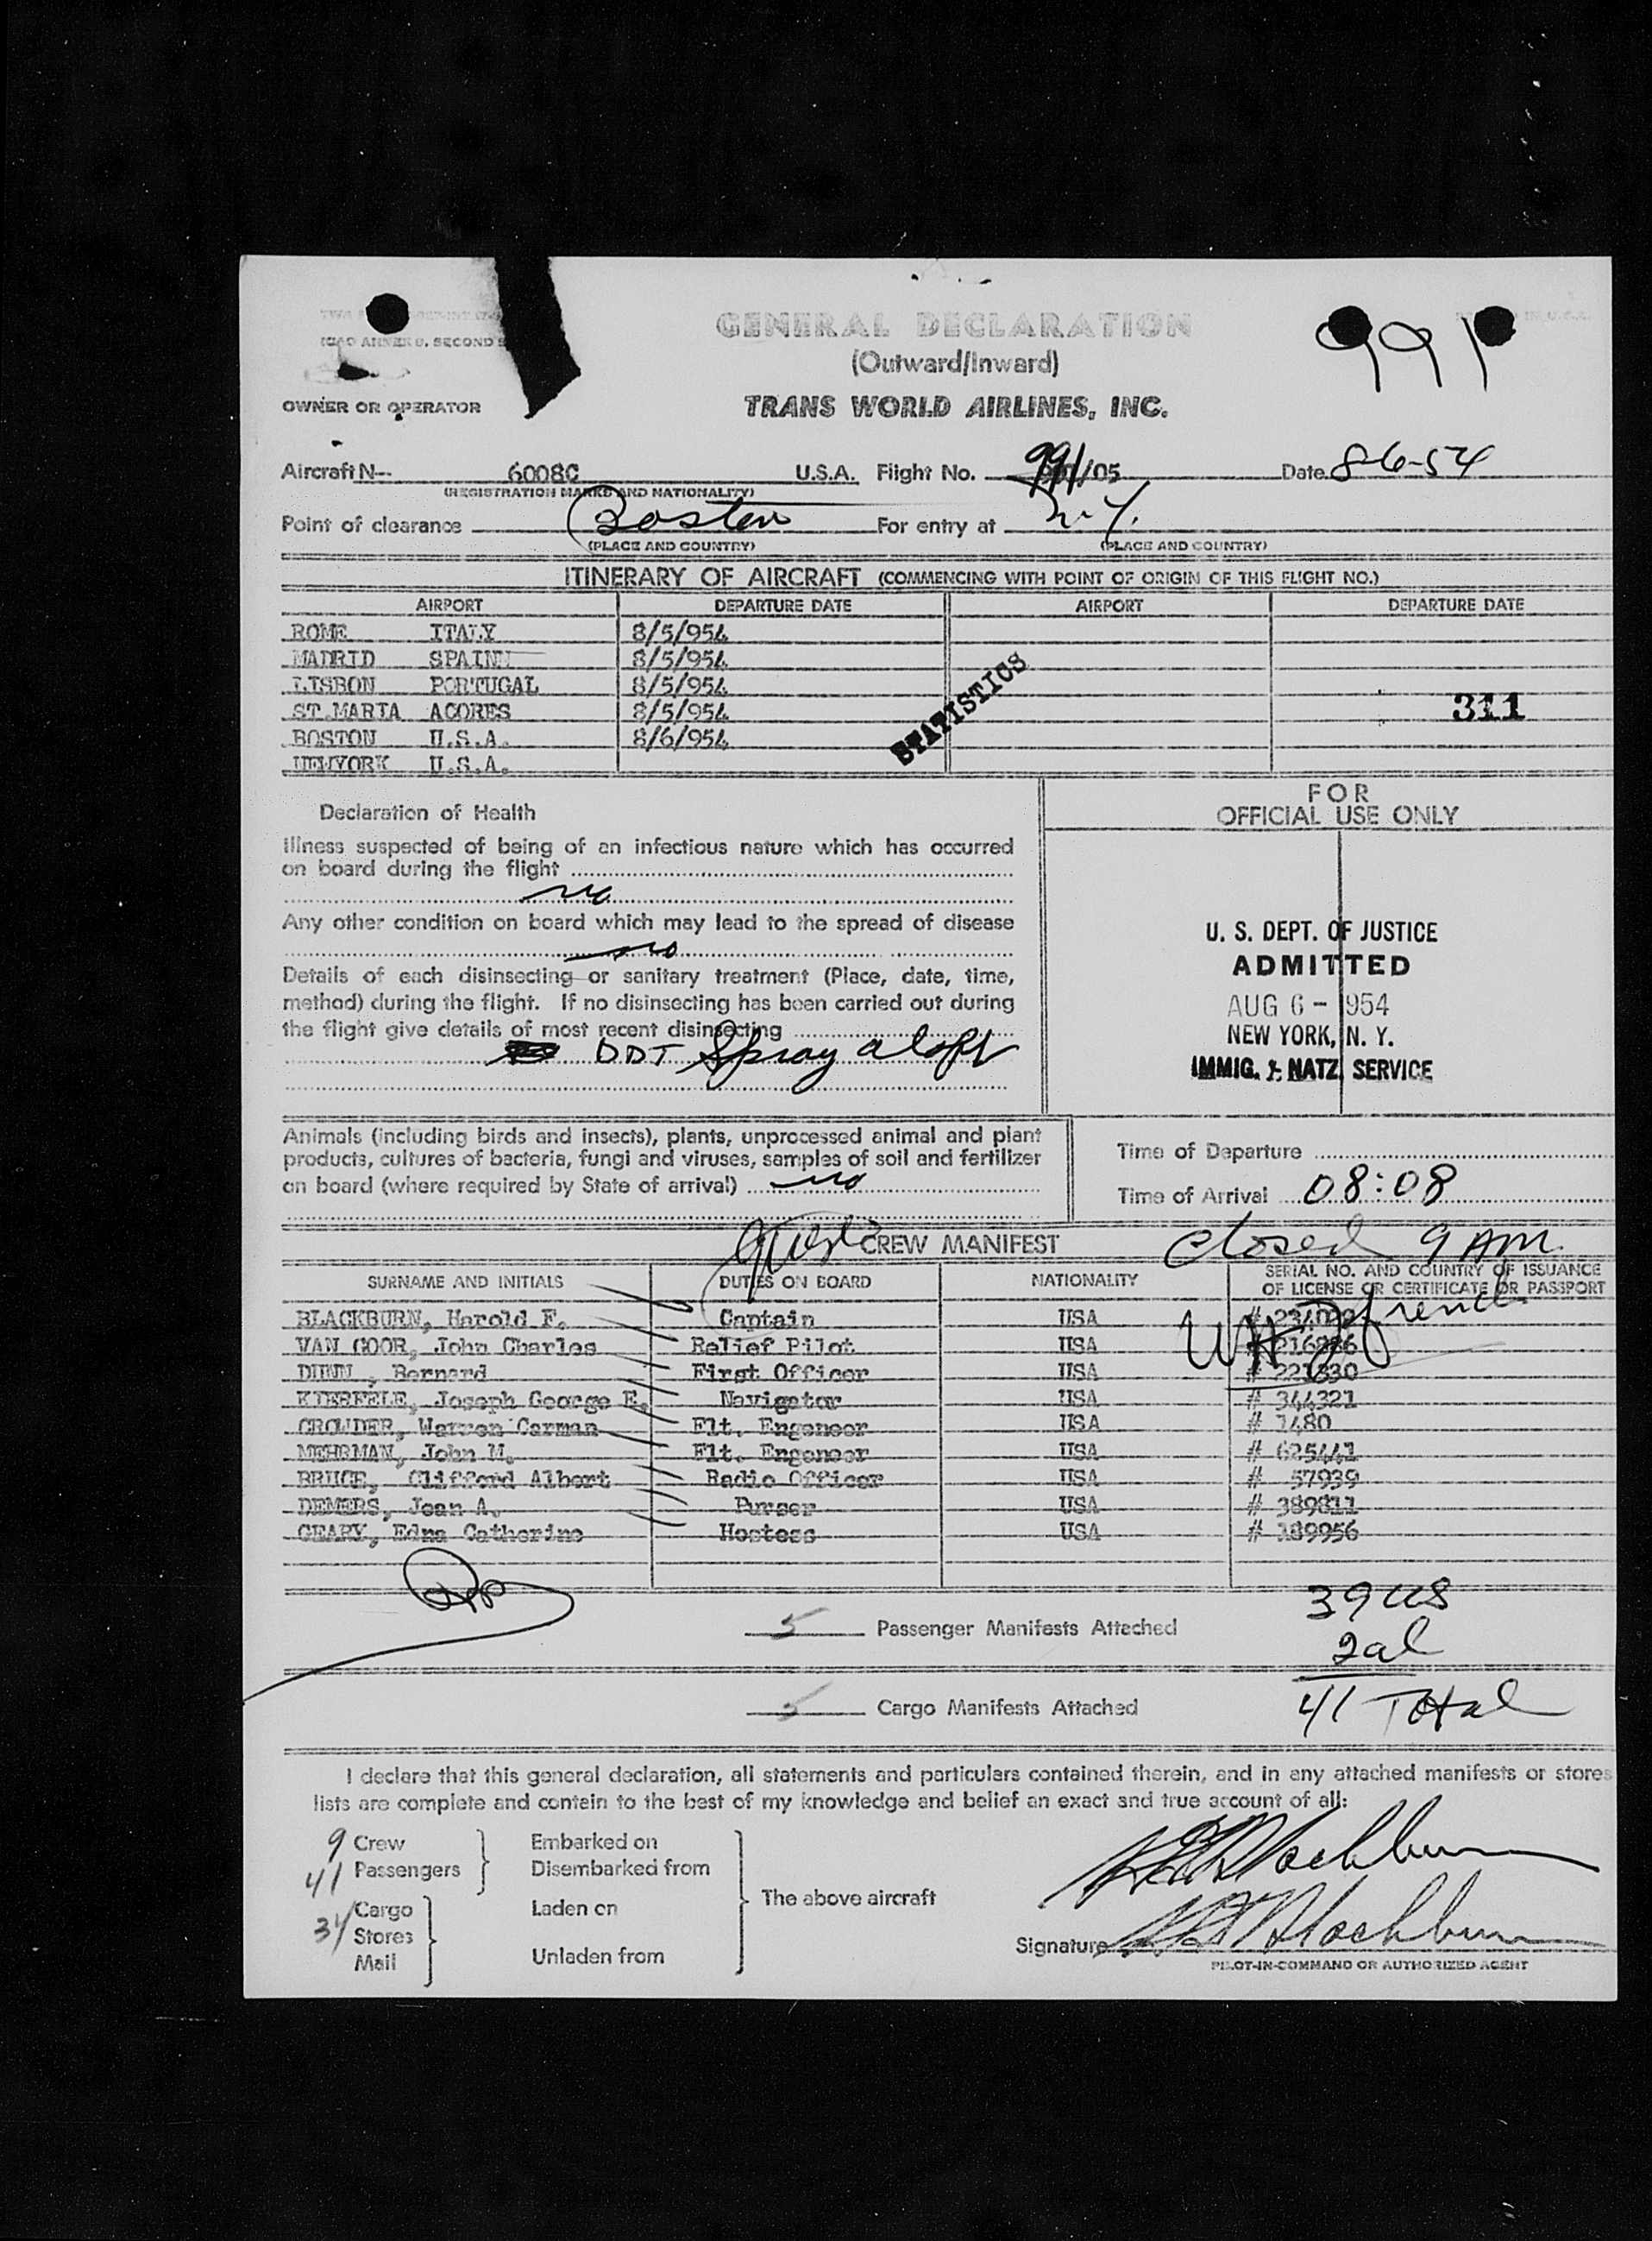 GENERAL DECLARATION
(Outward/Inward)
991
ICAO ANNEX 9, SECOND
OWNER OR OPERATOR
TRANS WORLD AIRLINES, INC.
Aircraft N-- 6008C U.S.A. Flight No. 991/05 Date 8-6-54
(REGISTRATION MARKS AND NATIONALITY)
Point of clearance Boston For entry at N.Y.
(PLACE AND COUNTRY) (PLACE AND COUNTRY)
ITINERARY OF AIRCRAFT (COMMENCING WITH POINT OF ORIGIN OF THIS FLIGHT NO.)
AIRPORT DEPARTURE DATE AIRPORT DEPARTURE DATE
ROME ITALY 8/5/954
MADRID SPAIN 8/5/954
LISBON PORTUGAL 8/5/954
ST.MARIA ACORES 8/5/954
BOSTON U.S.A. 8/6/954
NEWYORK U.S.A.
STATISTICS
311
Declaration of Health
Illness suspected of being of an infectious nature which has occurred
on board during the flight
no
Any other condition on board which may lead to the spread of disease
no
Details of each disinsecting or sanitary treatment (Place, date, time,
method) during the flight. If no disinsecting has been carried out during
the flight give details of most recent disinsecting
DDT Spray aloft
FOR
OFFICIAL USE ONLY
U. S. DEPT. OF JUSTICE
ADMITTED
AUG 6 - 1954
NEW YORK, N. Y.
IMMIG. & NATZ. SERVICE
Animals (including birds and insects), plants, unprocessed animal and plant
products, cultures of bacteria, fungi and viruses, samples of soil and fertilizer
on board (where required by State of arrival) no
Time of Departure
Time of Arrival 08:08
CREW MANIFEST
closed 9 AM
SURNAME AND INITIALS DUTIES ON BOARD NATIONALITY SERIAL NO. AND COUNTRY OF ISSUANCE
OF LICENSE OR CERTIFICATE OR PASSPORT
BLACKBURN, Harold F. Captain USA
VAN GOOR, John Charles Relief Pilot USA
DUNN , Bernard First Officer USA
KIERFELE, Joseph George E. Navigator USA # 344321
CROWDER, Warren Carman Flt. Engeneer USA # 1480
MEHRMAN, John M. Flt. Engeneer USA # 625441
BRUCE, Clifford Albert Radio Officer USA # 57939
DEMERS, Jean A. Purser USA # 389811
GEARY, Edna Catherine Hostess USA # 189956
5 Passenger Manifests Attached
39 US
2 al
41 Total
5 Cargo Manifests Attached
I declare that this general declaration, all statements and particulars contained therein, and in any attached manifests or stores
lists are complete and contain to the best of my knowledge and belief an exact and true account of all:
9 Crew
41 Passengers
Embarked on
Disembarked from
Cargo
Stores
Mail
Laden on
Unladen from
The above aircraft
H F Blackburn
Signature H F Blackburn
PILOT-IN-COMMAND OR AUTHORIZED AGENT